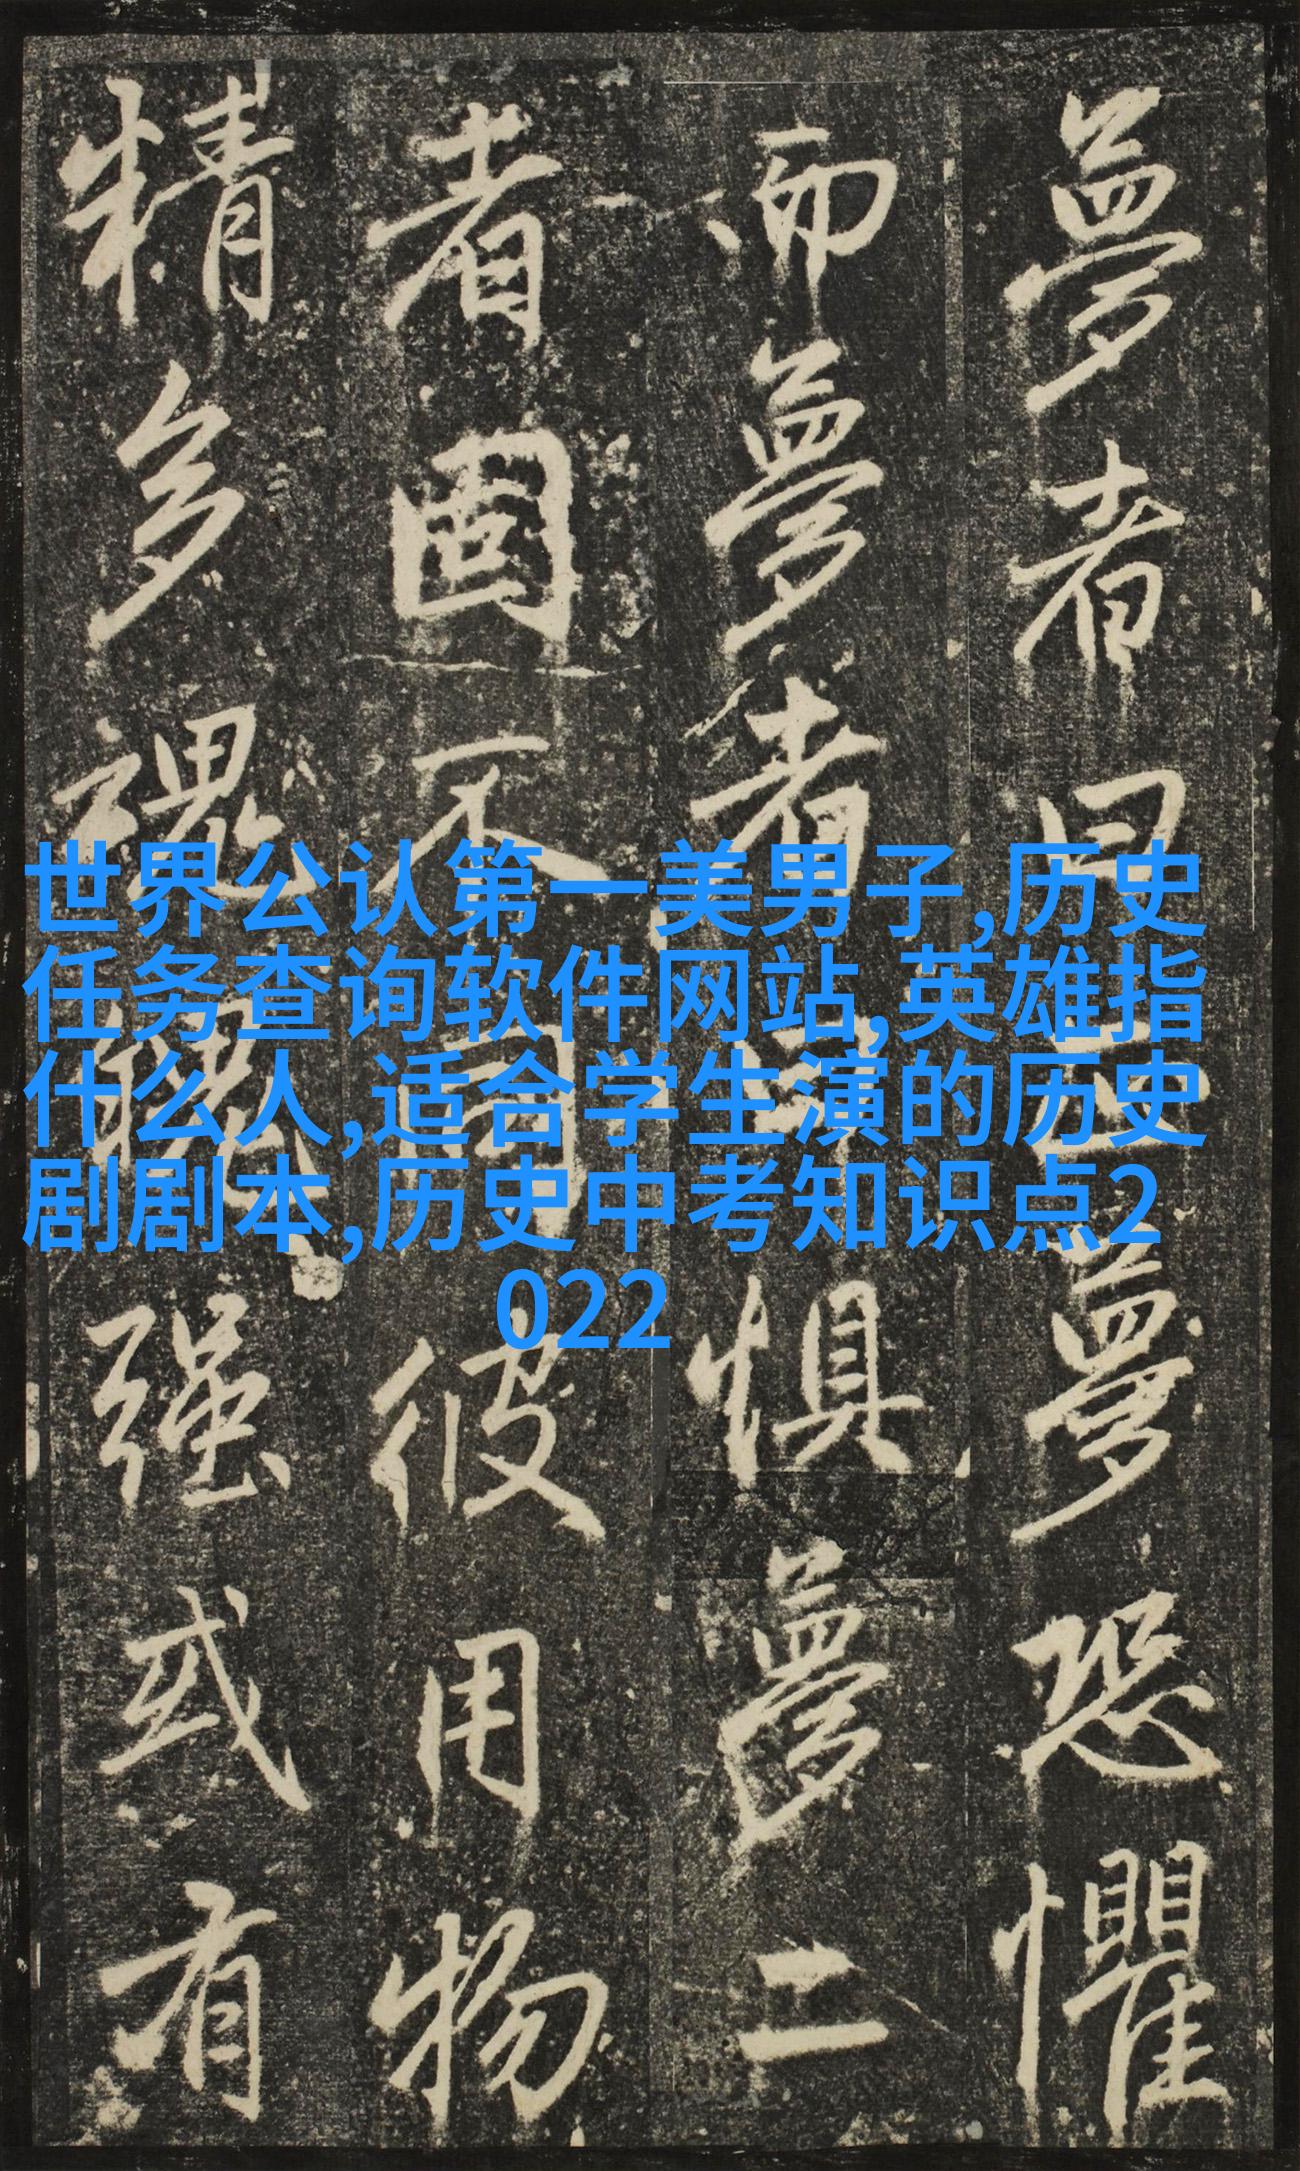 夢者
夢恐懼
而夢者
懼夢二
者固不同彼用物
精多魂魄强或有
世界公认第一美男子,历史
任务查询软件网站,英雄指
什么人,适合学生演的历史
剧剧本,历史中考知识点2
022